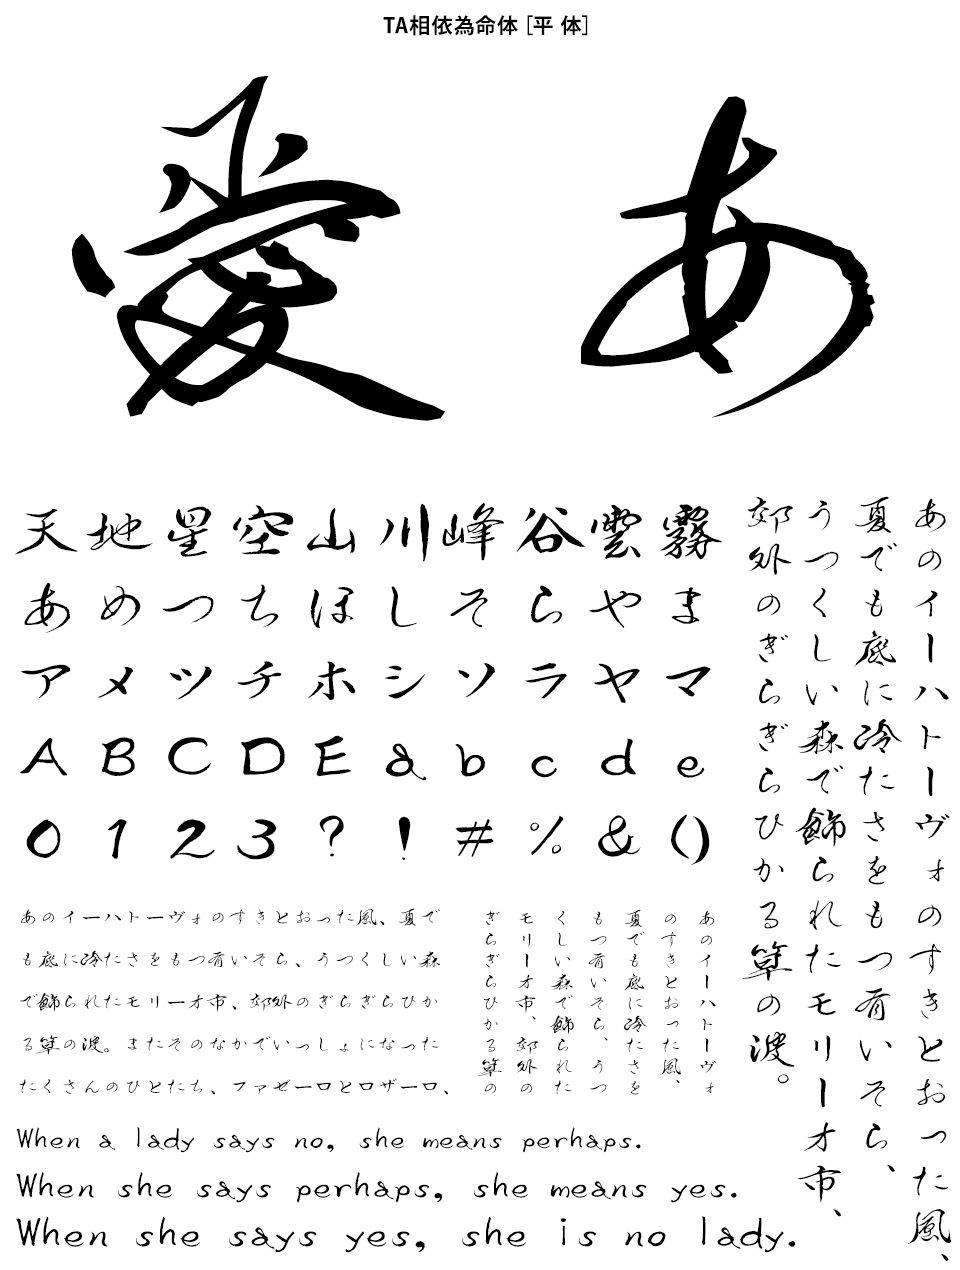 TA相依為命体 [平 体]
愛 あ
天地星空山川峰谷雲霧
あめつちほしそらやま
アメツチホシソラヤマ
ABCDEabcde
0123?!#%&()
あのイーハトーヴォのすきとおった風、
夏でも底に冷たさをもつ青いそら、
うつくしい森で飾られたモリーオ市、
郊外のぎらぎらひかる草の波。
あのイーハトーヴォのすきとおった風、夏で
も底に冷たさをもつ青いそら、うつくしい森
で飾られたモリーオ市、郊外のぎらぎらひか
る草の波。またそのなかでいっしょになった
たくさんのひとたち、ファゼーロとロザーロ、
あのイーハトーヴォ
のすきとおった風、
夏でも底に冷たさを
もつ青いそら、うつ
くしい森で飾られた
モリーオ市、郊外の
ぎらぎらひかる草の
When a lady says no, she means perhaps.
When she says perhaps, she means yes.
When she says yes, she is no lady.